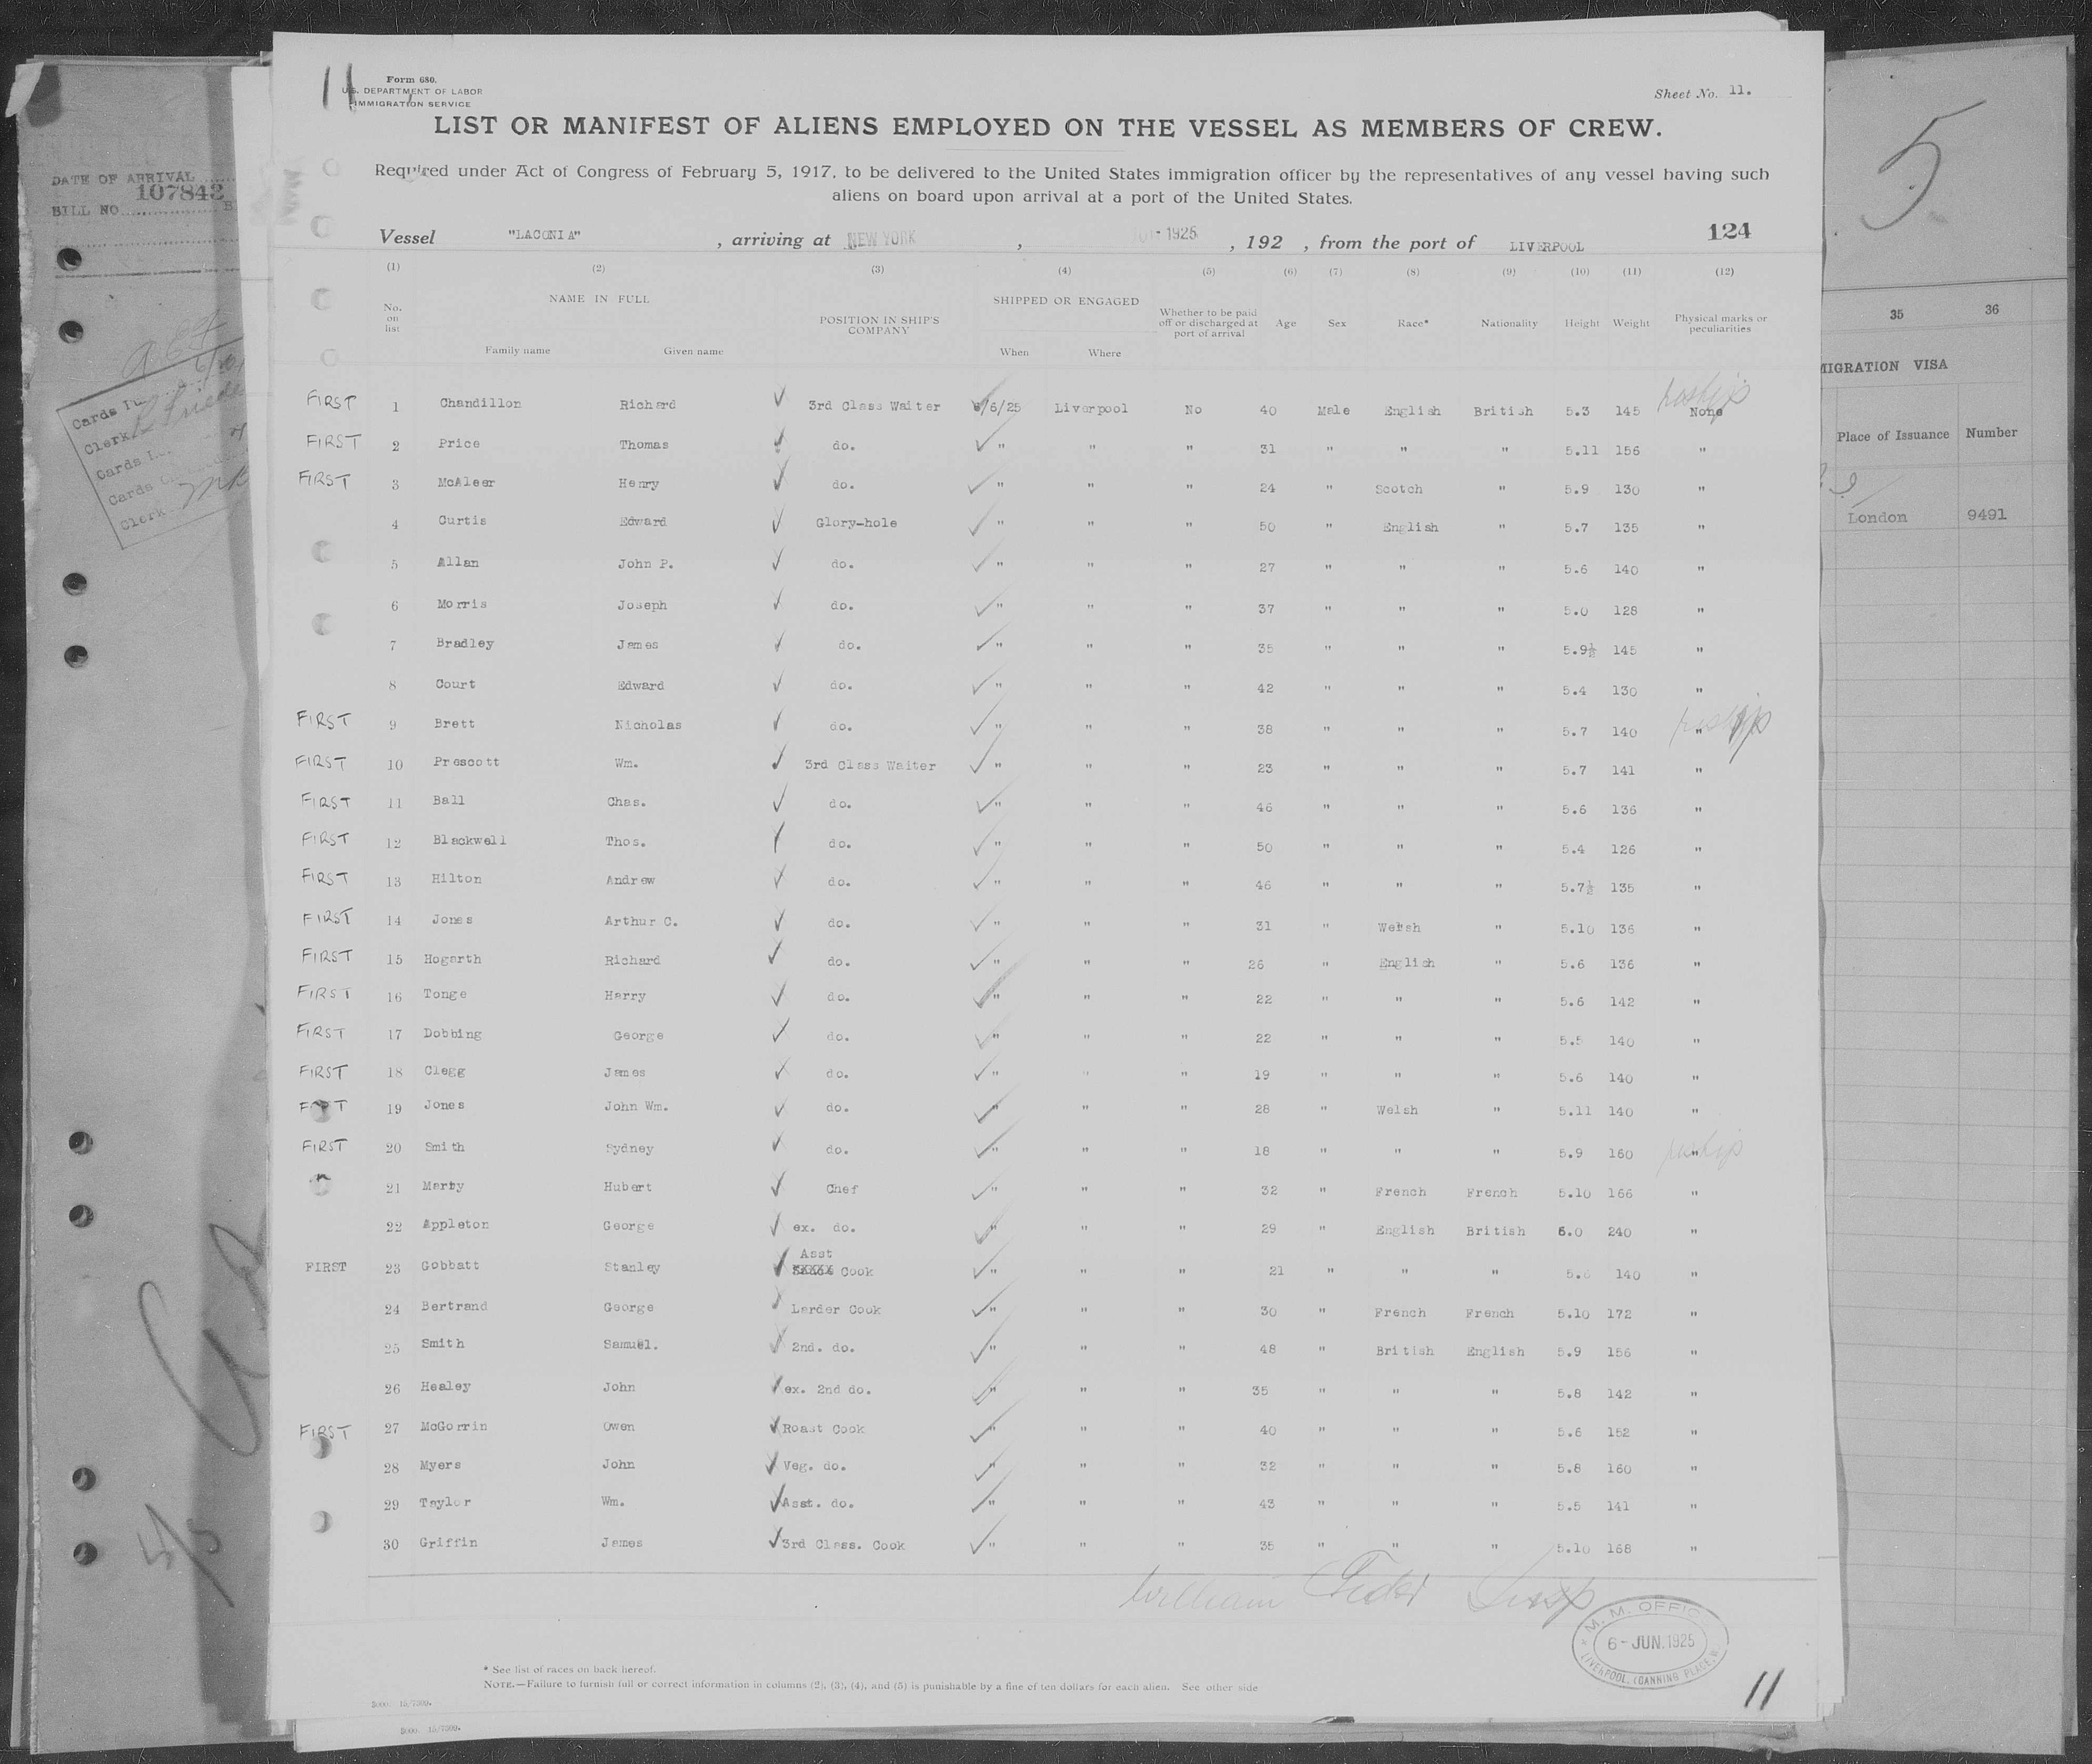 11
Form 680.
U.S. DEPARTMENT OF LABOR
IMMIGRATION SERVICE
Sheet No. 11.
LIST OR MANIFEST OF ALIENS EMPLOYED ON THE VESSEL AS MEMBERS OF CREW.
Required under Act of Congress of February 5, 1917, to be delivered to the United States immigration officer by the representatives of any vessel having such
aliens on board upon arrival at a port of the United States.
124
Vessel "LACONIA" , arriving at NEW YORK , 1925 , 192 , from the port of LIVERPOOL
(1) (2) (3) (4) (5) (6) (7) (8) (9) (10) (11) (12)
No. on list NAME IN FULL Family name Given name POSITION IN SHIP'S COMPANY SHIPPED OR ENGAGED When Where Whether to be paid off or discharged at port of arrival Age Sex Race* Nationality Height Weight Physical marks or peculiarities
FIRST 1 Chandillon Richard 3rd Class Waiter 6/6/25 Liverpool No 40 Male English British 5.3 145 None
FIRST 2 Price Thomas do. " " " 31 " " " 5.11 156 "
FIRST 3 McAleer Henry do. " " " 24 " Scotch " 5.9 130 "
4 Curtis Edward Glory-hole " " " 50 " English " 5.7 135 "
5 Allan John P. do. " " " 27 " " " 5.6 140 "
6 Morris Joseph do. " " " 37 " " " 5.0 128 "
7 Bradley James do. " " " 35 " " " 5.9½ 145 "
8 Court Edward do. " " " 42 " " " 5.4 130 "
FIRST 9 Brett Nicholas do. " " " 38 " " " 5.7 140 "
FIRST 10 Prescott Wm. 3rd Class Waiter " " " 23 " " " 5.7 141 "
FIRST 11 Ball Chas. do. " " " 46 " " " 5.6 136 "
FIRST 12 Blackwell Thos. do. " " " 50 " " " 5.4 126 "
FIRST 13 Hilton Andrew do. " " " 46 " " " 5.7½ 135 "
FIRST 14 Jones Arthur C. do. " " " 31 " Welsh " 5.10 136 "
FIRST 15 Hogarth Richard do. " " " 26 " English " 5.6 136 "
FIRST 16 Tonge Harry do. " " " 22 " " " 5.6 142 "
FIRST 17 Dobbing George do. " " " 22 " " " 5.5 140 "
FIRST 18 Clegg James do. " " " 19 " " " 5.6 140 "
FIRST 19 Jones John Wm. do. " " " 28 " Welsh " 5.11 140 "
FIRST 20 Smith Sydney do. " " " 18 " " " 5.9 160 "
21 Marty Hubert Chef " " " 32 " French French 5.10 166 "
22 Appleton George ex. do. " " " 29 " English British 6.0 240 "
FIRST 23 Gobbatt Stanley Asst Cook " " " 21 " " " 140 "
24 Bertrand George Larder Cook " " " 30 " French French 5.10 172 "
25 Smith Samuel. 2nd. do. " " " 48 " British English 5.9 156 "
26 Healey John ex. 2nd do. " " " 35 " " " 5.8 142 "
FIRST 27 McGorrin Owen Roast Cook " " " 40 " " " 5.6 152 "
28 Myers John Veg. do. " " " 32 " " " 5.8 160 "
29 Taylor Wm. Asst. do. " " " 43 " " " 5.5 141 "
30 Griffin James 3rd Class. Cook " " " 35 " " " 5.10 168 "
William
M. M. OFFICE
6 - JUN. 1925
LIVERPOOL. (CANNING PLACE.)
* See list of races on back hereof.
NOTE.—Failure to furnish full or correct information in columns (2), (3), (4), and (5) is punishable by a fine of ten dollars for each alien. See other side
11
DATE OF ARRIVAL
107843
BILL NO
Cards
Clerk
Cards
Cards
Clerk
5
35 36
MIGRATION VISA
Place of Issuance Number
London 9491